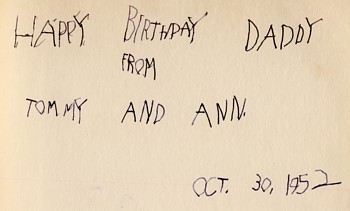 HAPPY BIRTHDAY DADDY
FROM
TOMMY AND ANN.
OCT. 30, 1952